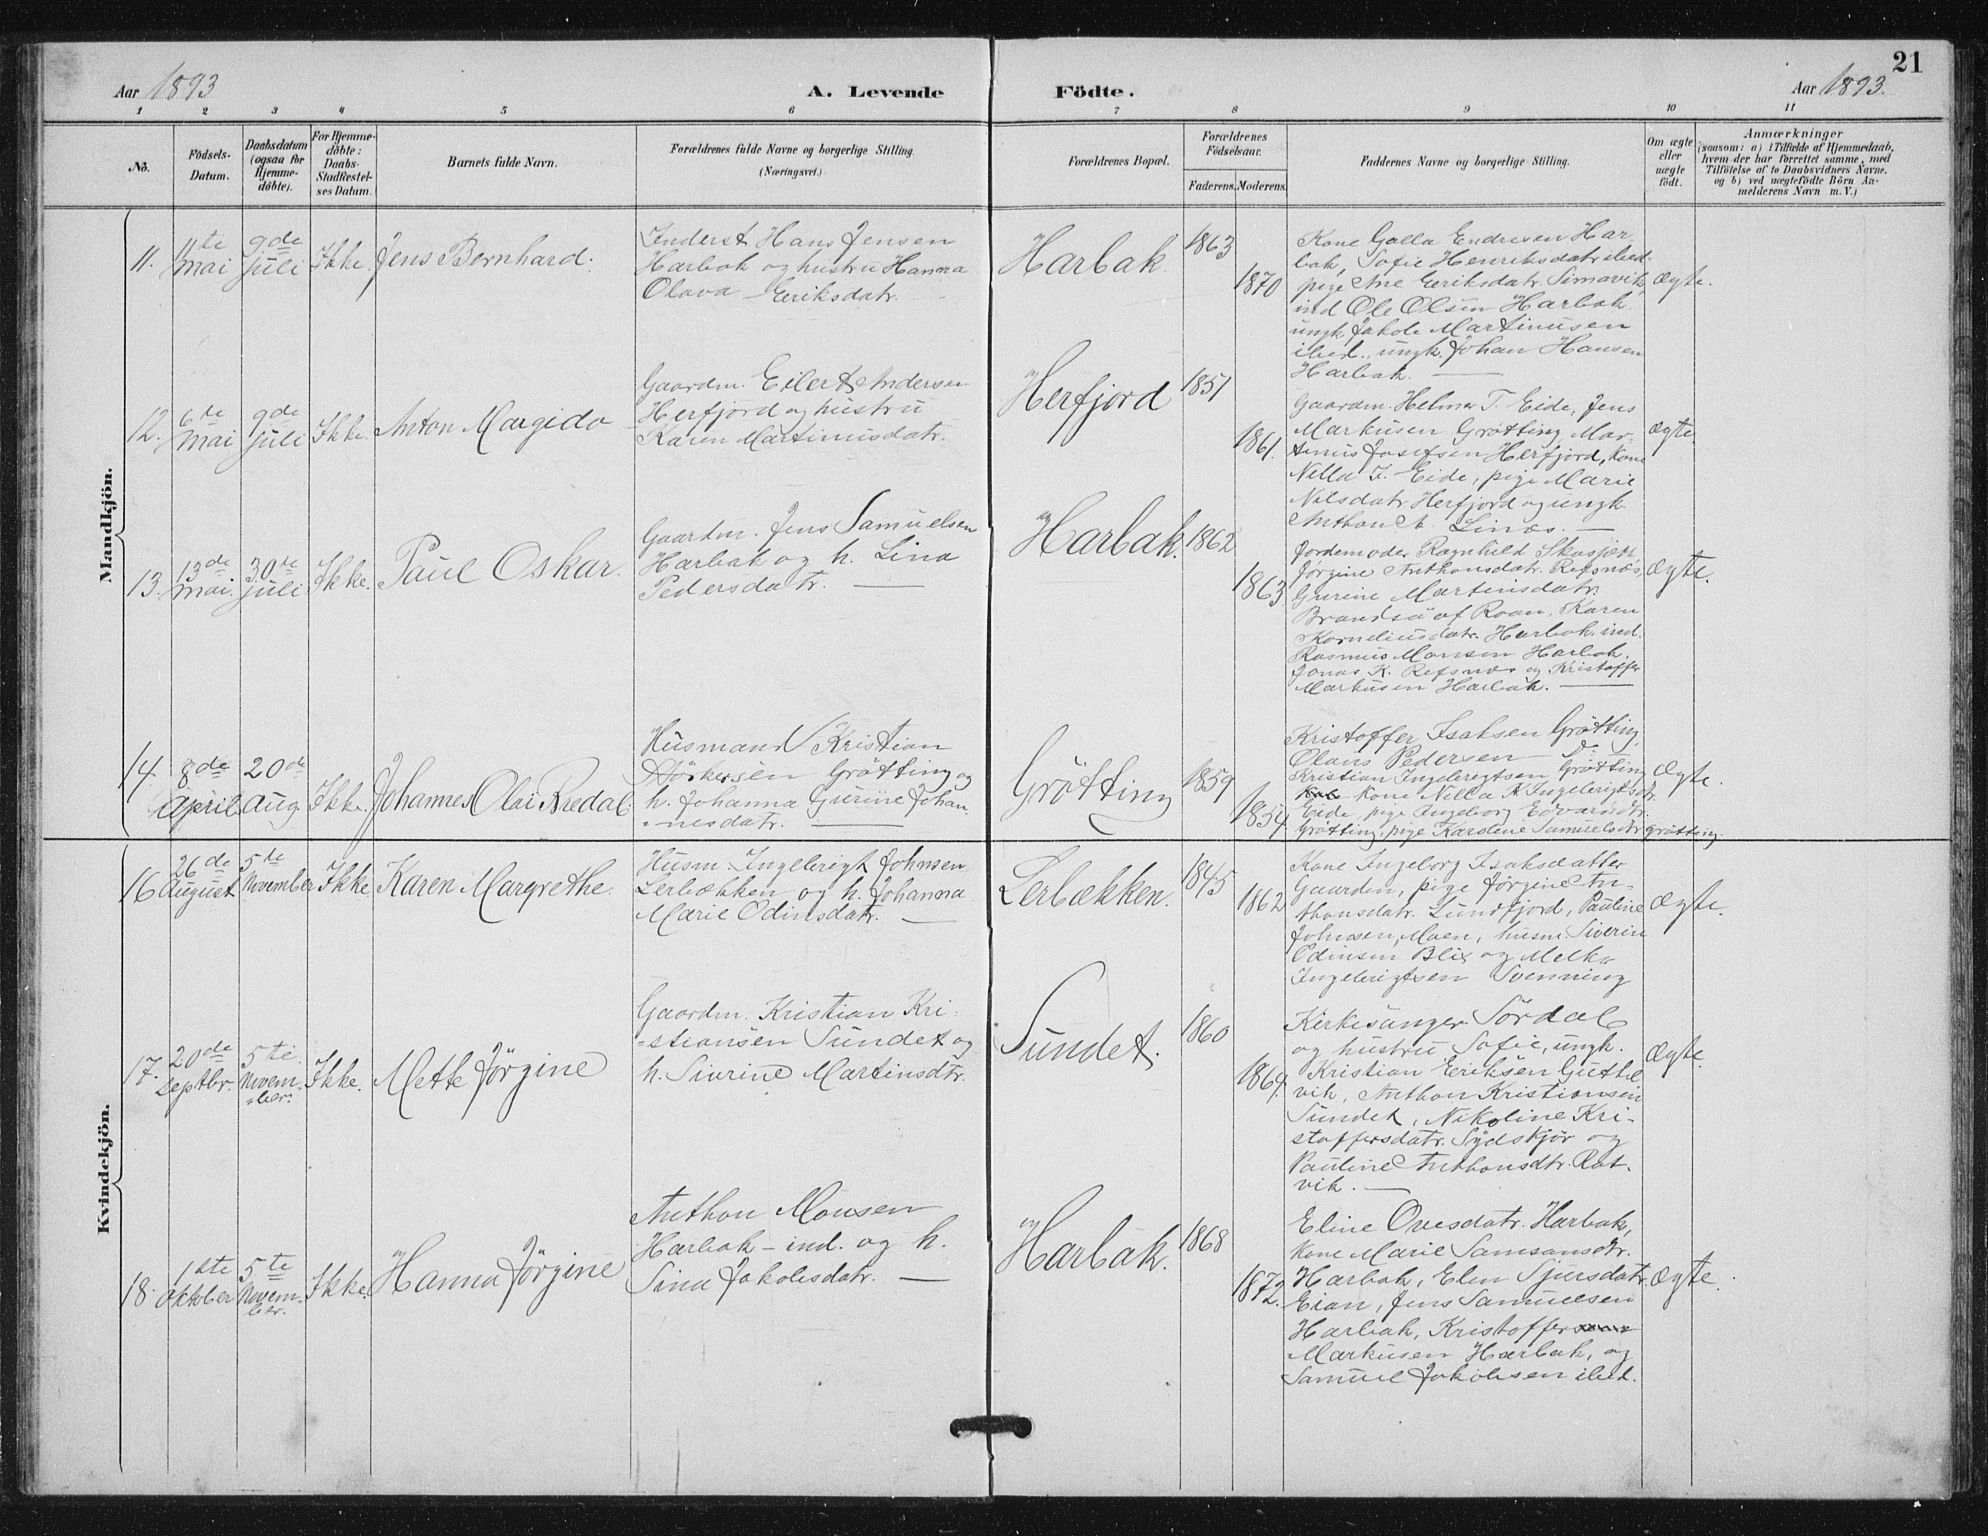 21
Aar 1893
A. Levende Födte.
Aar 1893.
1 2 3 4 5 6 7 8 9 10 11
No.
Födsels-
Datum.
Daabsdatum
(ogsaa for
Hjemme-
döbte).
For Hjemme-
döbte:
Daabs-
Stadfæstel-
ses Datum.
Barnets fulde Navn.
Forældrenes fulde Navne og borgerlige Stilling.
(Næringsvei.)
Forældrenes Bopæl.
Forældrenes
Födselsaar.
Faderens. Moderens.
Faddernes Navne og borgerlige Stilling.
Om ægte
eller
uægte
født.
Anmærkninger
(saasom: a) i Tilfælde af Hjemmedaab,
hvem der har forrettet samme, med
Tilföielse af to Daabsvidners Navne,
og b) ved uægtefödte Börn An-
melderens Navn m. V.)
Mandkjön.
11.
11te
mai
9de
juli
Ikke.
Jens Bernhard.
Inderst Hans Jensen
Harbak og hustru Hanna
Olava Eeriksdatr.
Harbak
1863
1870
Kone Golla Endresen Har
bak, Sofie Henriksdatr ibed.
pige Ane Eeriksdatr. Simavik,
ind Ole Olsen Harbak
ungk, Jakob Martinusen
ibid., ungk. Johan Hansen
Harbak.
ægte.
12.
6te
mai
9de
juli
Ikke.
Anton Margido
Gaardm. Eilert Andersen
Herfjord og hustru
Karen Martinusdatr.
Herfjord
1851
1861.
Gaardm. Helmer T. Eide, Jens
Markusen Gröttting, Mar-
tinus Josefsen Herfjord, kone
Nella I. Eide, pige Marie
Nilsdatr. Herfjord og ungk.
Anthon A. Linæs.
ægte.
13.
13de
mai.
30te
juli
Ikke.
Paul Oskar.
Gaardm. Jens Samuelsen
Harbak og h. Lina
Pedersdatr.
Harbak.
1862
1863
Jordemoder Ragnhild Skasjær,
Jørgine Anthonsdatr. Refsnæs,
Gurine Martinsdatr.
Brandsø af Roan, Karen
Korneliusdatr. Harbak, ind.
Rasmus Monsen Harbak,
Jonas K. Refsnæs og Kristoffer
Markusen Harbak.
ægte.
14.
8de
April
20de
Aug.
Ikke.
Johannes Olai Bredal.
Husmand Kristian
Störkersen Grötting og
h. Johanna Gurine Johan
=nesdatr.
Grötting
1859
1854.
Kristoffer Isaksen Grötting,
Olaus Pedersen
Kristian Ingebrigtsen Grötting
kone Nella K. Ingebrigtsdtr.
Eide, pige Ingeborg Edvardsdtr.
Grötting, pige Karoline Samuelsdtr Grötting.
ægte.
Kvindekjön.
16
26de
August
5te
November
Ikke
Karen Margrethe.
Husm. Ingebrigt Johnsen
Lerbækken og h. Johanna
Marie Odinsdatr.
Lerbækken.
1845
1862
Kone Ingeborg Isaksdatter
Gaarden, pige Jørgine An-
thonsdatr. Sundfjord, Pauline
Johnsen, Moen, husm. Siverin
Odinsen Blix og Melker
Ingebrigtsen Svenning
ægte.
17.
20de
Septbr.
5te
Novem-
=ber.
Ikke.
Mette Jörgine
Gaardm. Kristian Kri-
=stiansen Sundet og
h. Sivrine Martinsdtr.
Sundet.
1860
1869.
Kirkesanger Sördal
og hustru Sofie, ungk.
Kristian Eeriksen Guttel
vik, Anthon Kristiansen
Sundet, Nikoline Kri-
stoffersdatr. Sydskjör og
Pauline Anthonsdtr. Rat-
vik.
ægte.
18.
1ste
Oktober
5te
Novem-
ber.
Ikke.
Hanna Jörgine
Anthon Monsen
Harbak - ind. og h.
Sina Jakobsdatr.
Harbak.
1868
1872.
Eline Ovesdatr. Harbak,
kone Marie Samsonsdtr.
Harbak, Elen Sjursdatr.
Eian, Jens Samuelsen
Harbak, Kristoffer
Markusen Harbak, og
Samuel Jakobsen ibid.
ægte.